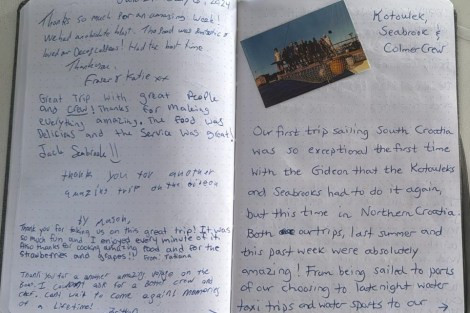 2024
Thanks so much for an amazing week!
We had an absolute blast. The food was fantastic &
loved on Georgie Albon! Had the best time.
Thank you,
Fraser & Katie xx
Great Trip with great People
and crew! Thanks for making
everything amazing. The Food was
Delicias and the Service was great!
Jack Seabrook!!
thank you for another
amazing trip on the
by Anson,
Thank you for taking us on this great trip! It was
so much fun and I enjoyed every minute of it.
Also thanks for cooking amazing food and for the
strawberries and grapes!! From Tatiana
Thank you for a another amazing voyage on the
Boat. I couldn't ask for a better crew and
chef. Can't wait to come again! Memories
of a Lifetime!
Kotowek,
Seabrook &
Colmer Crew
Our first trip sailing South Croatia
was so exceptional the first time
with the Gideon that the Kotowicks
and Seabrooks had to do it again,
but this time in Northern Croatia.
Both our trips, last summer and
this past week were absolutely
amazing! From being sailed to ports
of our choosing to late night water
taxi trips and water sports to our →